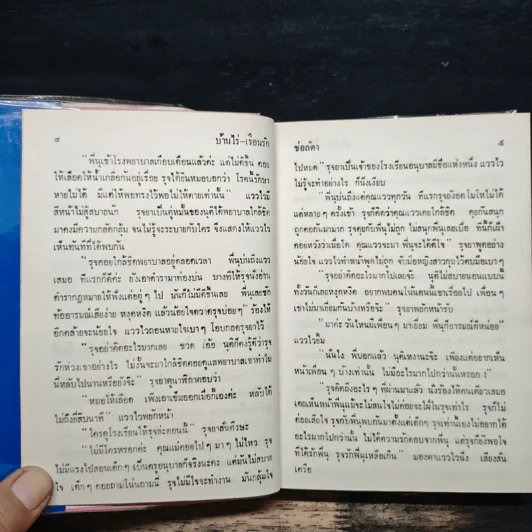 ๔
บ้านไร่-เรือนรัก
"พี่นุเข้าโรงพยาบาลเกือบเดือนแล้วค่ะ แต่ไม่ดีขึ้น คอย
ให้เลือดให้น้ำเกลือกันอยู่เรื่อย รุจได้ยินหมอบอกว่า โรคนี้รักษา
หายไม่ได้ มีแต่ให้พอทรงไว้พอไม่ให้ตายเท่านั้น" แววไวมี
สีหน้าไม่สู้สบายนัก
มาคงมีความกลัดกลุ้ม จนไม่รู้จะระบายกับใคร จึงแสดงให้แววไว
เห็นทันทีที่ได้พบกัน
"รุจคอยใกล้ชิดพยาบาลอยู่ตลอดเวลา พี่นุบ่นถึงแวว
เสมอ ที่แรกก็ดีค่ะ ยังเอาตำรามาท่องบ่น บางทีให้รุจนั่งอ่าน
ตำรากฎหมายให้ฟังแต่อยู่ ๆ ไป มันก็ไม่ดีขึ้นเลย พี่นุเลยชัก
ท้ออารมณ์เสียง่าย หงุดหงิด แล้วน้อยใจตวาดรุจบ่อยๆ" ร้องไห้
อีกคล้ายจะน้อยใจ แววไวถอนหายใจเบาๆ โอบกอดรุจยาไว้
"รุจอย่าคิดอะไรมากเลย
รักห่วงเขาอย่างไร
นี่หลับไปนานหรือยังจ๊ะ" รุจยาดูนาฬิกาตอบว่า
"หมอให้เลือด เพิ่งเอาเข็มออกเมื่อกี้เองค่ะ หลับได้
ไม่ถึงยี่สิบนาที" แววไวพยักหน้า
"ใครดูโรงเรียนให้รุจล่ะตอนนี้" รุจยาสั่นศีรษะ
"ไม่มีใครหรอกค่ะ คุณแม่คอยไปๆ มาๆ ไม่ไหว รุจ
ไม่มีแรงไปสอนเด็กๆ เป็นครูอนุบาลก็จริงนะคะ แต่มันไม่สบาย
ใจ เด็กๆ คอยถามโน่นถามนี่ รุจไม่มีใจจะทำงาน มันกลุ้มใจ
ช่อลัดา
๕
ไปหมด" รุจยาเป็นเจ้าของโรงเรียนอนุบาลมีชื่อแห่งหนึ่ง แววไว
ไม่รู้จะทำอย่างไร ก็นั่งเงียบ
"พี่นุบ่นถึงแต่คุณแววทุกวัน ที่แรกรุจยังอดโมโหไม่ได้
แต่หลาย ๆ ครั้งเข้า รุจก็คิดว่าคุณแววเคยใกล้ชิด คุยกันสนุก
ถูกคอกันมามาก รุจคุยกับพี่นุไม่ถูก ไม่สนุกพี่นุเลยเบื่อ ทีนี้ก็เฝ้า
คอยหวังว่าเมื่อใด คุณแววจะมา พี่นุจะได้ดีใจ" รุจยาพูดอย่าง
น้อยใจ แววไวทำหน้าพูดไม่ถูก จับมือหญิงสาวกุมไว้ตบมือเบาๆ
"รุจอย่าคิดอะไรมากไปเลยจ้ะ นุคิดไม่สบายนอนแบบนี้
ทั้งวันก็เลยหงุดหงิด อยากพบคนโน้นคนนี้ธรรมดาเรื่อยไป เพื่อน ๆ
เขาไม่มาเยี่ยมกันบ้างหรือจ๊ะ" รุจยาพยักหน้ารับ
"มาค่ะ วันไหนมีเพื่อนๆ มาเยี่ยม พี่นุก็อารมณ์ดีหน่อย"
แววไวยิ้ม
"นั่นไง พี่บอกแล้ว นุคิดเหงานะจ๊ะ เพียงแต่อยากเห็น
หน้าเพื่อน ๆ บ้างเท่านั้น ไม่มีอะไรมากไปกว่านั้นหรอก!"
"รุจคิดถึงอะไร ๆ ที่ผ่านมาแล้ว นั่งร้องไห้คนเดียวเสมอ
ค่อยเสือใจ รุจกับพี่นุพบกันมาตั้งแต่เด็กๆ รุจเท่านั้นเองไม่อยากได้
อะไรมากไปกว่านั้น ไม่ได้ความรักตอบจากพี่นุ แต่รุจก็ยังพอใจ
ที่ได้รักพี่นุ รุจรักพี่นุเหลือเกิน" มองตาแววไวนิ่ง เสียงสั่น
เครือ